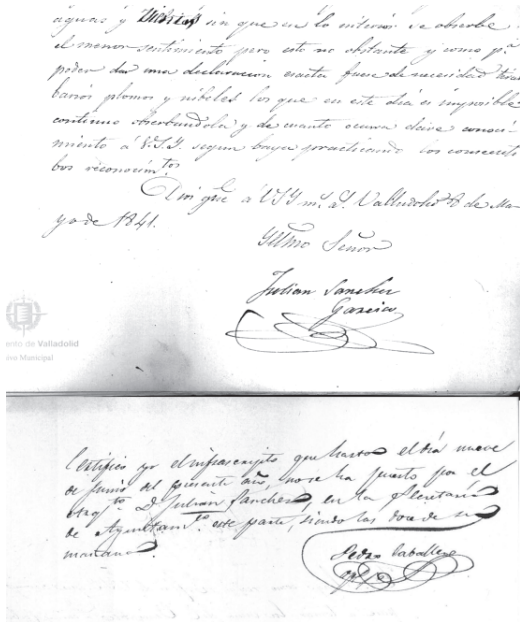 aguas y sin que en lo interior se observe
el menor sentimiento pero esto no obstante y como pª
poder dar una declaracion exacta fuese de necesidad tirar
barios plomos y nibeles los que en este dia es imposible
continuo oserbandola y de cuanto ocurra daré conoci-
miento á V.S.Y. segun baya practicando los
bos reconocimtos
Dios gue á VSY ms as Valladolid 8 de Ma-
yo de 1841.
Yllmo Señor
Julian Sanchez
Garcia
ento de Valladolid
ivo Municipal
Certifico yo el infrascripto que hasta el dia nueve
de Junio del presente año, no se ha puesto por el
Arqto D. Julián Sanchez, en la Secretaría
de Ayuntamto este parte, siendo las doce de su
mañana.
Pedro Caballero